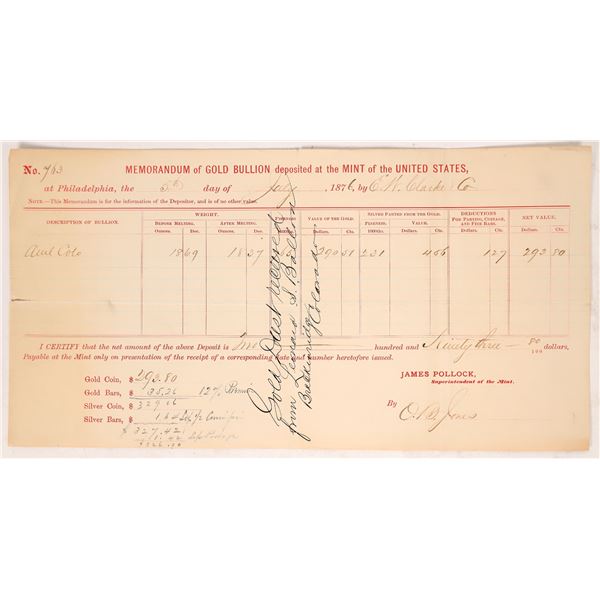 No. 763 MEMORANDUM of GOLD BULLION deposited at the MINT of the UNITED STATES,
at Philadelphia, the 5th day of July 1876, by E. W. Clark & Co
NOTE.—This Memorandum is for the information of the Depositor, and is of no other value.
DESCRIPTION OF BULLION. WEIGHT. VALUE OF THE GOLD. SILVER PARTED FROM THE GOLD. DEDUCTIONS FOR PARTING, COINAGE, AND FINE BARS. NET VALUE.
BEFORE MELTING. AFTER MELTING. FINENESS. VALUE.
Ounces. Dec. Ounces. Dec. Dollars. Cts. 1000ths. Dollars. Cts. Dollars. Cts. Dollars. Cts.
Colo 18 69 18 37 290 51 231 4 56 1 27 293 80
I CERTIFY that the net amount of the above Deposit is Two hundred and Ninety three — 80/100 dollars,
Payable at the Mint only on presentation of the receipt of a corresponding date and number heretofore issued.
JAMES POLLOCK,
Superintendent of the Mint.
By
Gold Coin, $ 293.80
Gold Bars, $ 35.26 12% Premium
Silver Coin, $ 329.06
Silver Bars, $ 1.64
$ 327.42
Gold Dust received
from
Breckenridge
Colorado